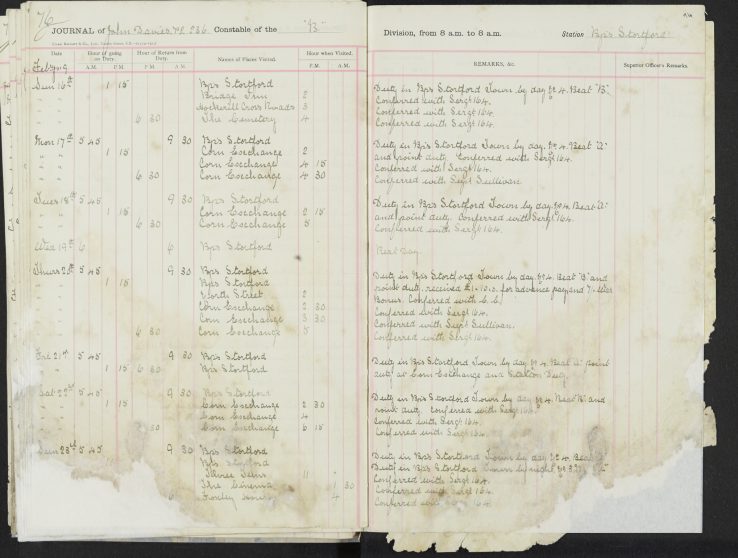 76
JOURNAL of John Davies P.C. 236 Constable of the "B"
Date Hour of going on Duty. Hour of Return from Duty. Names of Places Visited. Hour when Visited.
A.M. P.M. A.M. P.M. P.M. A.M.
Feby 1919
Sun 16th 1 15 Bps Stortford
" Bridge Inn 2
" Hockerill Cross Roads 3
" 6 30 The Cemetery 4
Mon 17th 5 45 9 30 Bps Stortford
" 1 15 Corn Exchange 2
" Corn Exchange 4 15
" 6 30 Corn Exchange 4 30
Tues 18th 5 45 9 30 Bps Stortford
" 1 15 Corn Exchange 2 15
" 6 30 Corn Exchange 5
Wed 19th 6 6 Bps Stortford
Thurs 20th 5 45 9 30 Bps Stortford
" 1 15 Bps Stortford
" North Street 2
" Corn Exchange 2 30
" Corn Exchange 3 30
" 6 30 Corn Exchange 5
Fri 21st 5 45 9 30 Bps Stortford
" 1 15 6 30 Bps Stortford
Sat 22nd 5 45 9 30 Bps Stortford
" 1 15 Corn Exchange 2 30
" Corn Exchange 4
" 30 Corn Exchange 6 15
Sun 23rd 5 45 9 30 Bps Stortford
Bps Stortford
11
The Cinema 1 30
4
Division, from 8 a.m. to 8 a.m. Station Bps Stortford
REMARKS, &c. Superior Officer's Remarks.
Duty in Bps Stortford Town by day No 4. Beat "B"
Conferred with Sergt 164.
Conferred with Sergt 164.
Conferred with Sergt 164.
Duty in Bps Stortford Town by day No 4. Beat "A"
and point duty. Conferred with Sergt 164.
Conferred with Sergt 164.
Conferred with Supt Sullivan.
Duty in Bps Stortford Town by day No 4. Beat "A"
and point duty. Conferred with Sergt 164.
Conferred with Sergt 164.
Rest Day.
Duty in Bps Stortford Town by day No 4. Beat "B" and
point duty. received for advance pay and War
Bonus. Conferred with
Conferred with Sergt 164.
Conferred with Supt Sullivan.
Conferred with Sergt 164.
Duty in Bps Stortford Town by day No 4. Beat "A" point
duty at Corn Exchange and Station Duty.
Duty in Bps Stortford Town by day No 4. Beat "B" and
point duty. Conferred with Sergt 164.
Conferred with Sergt 164.
Conferred with Sergt 164.
Duty in Bps Stortford Town by day No 4. Beat
Duty in Bps Stortford Town by night
Conferred with Sergt 164.
Conferred with Sergt 164.
Conferred with Sergt 164.